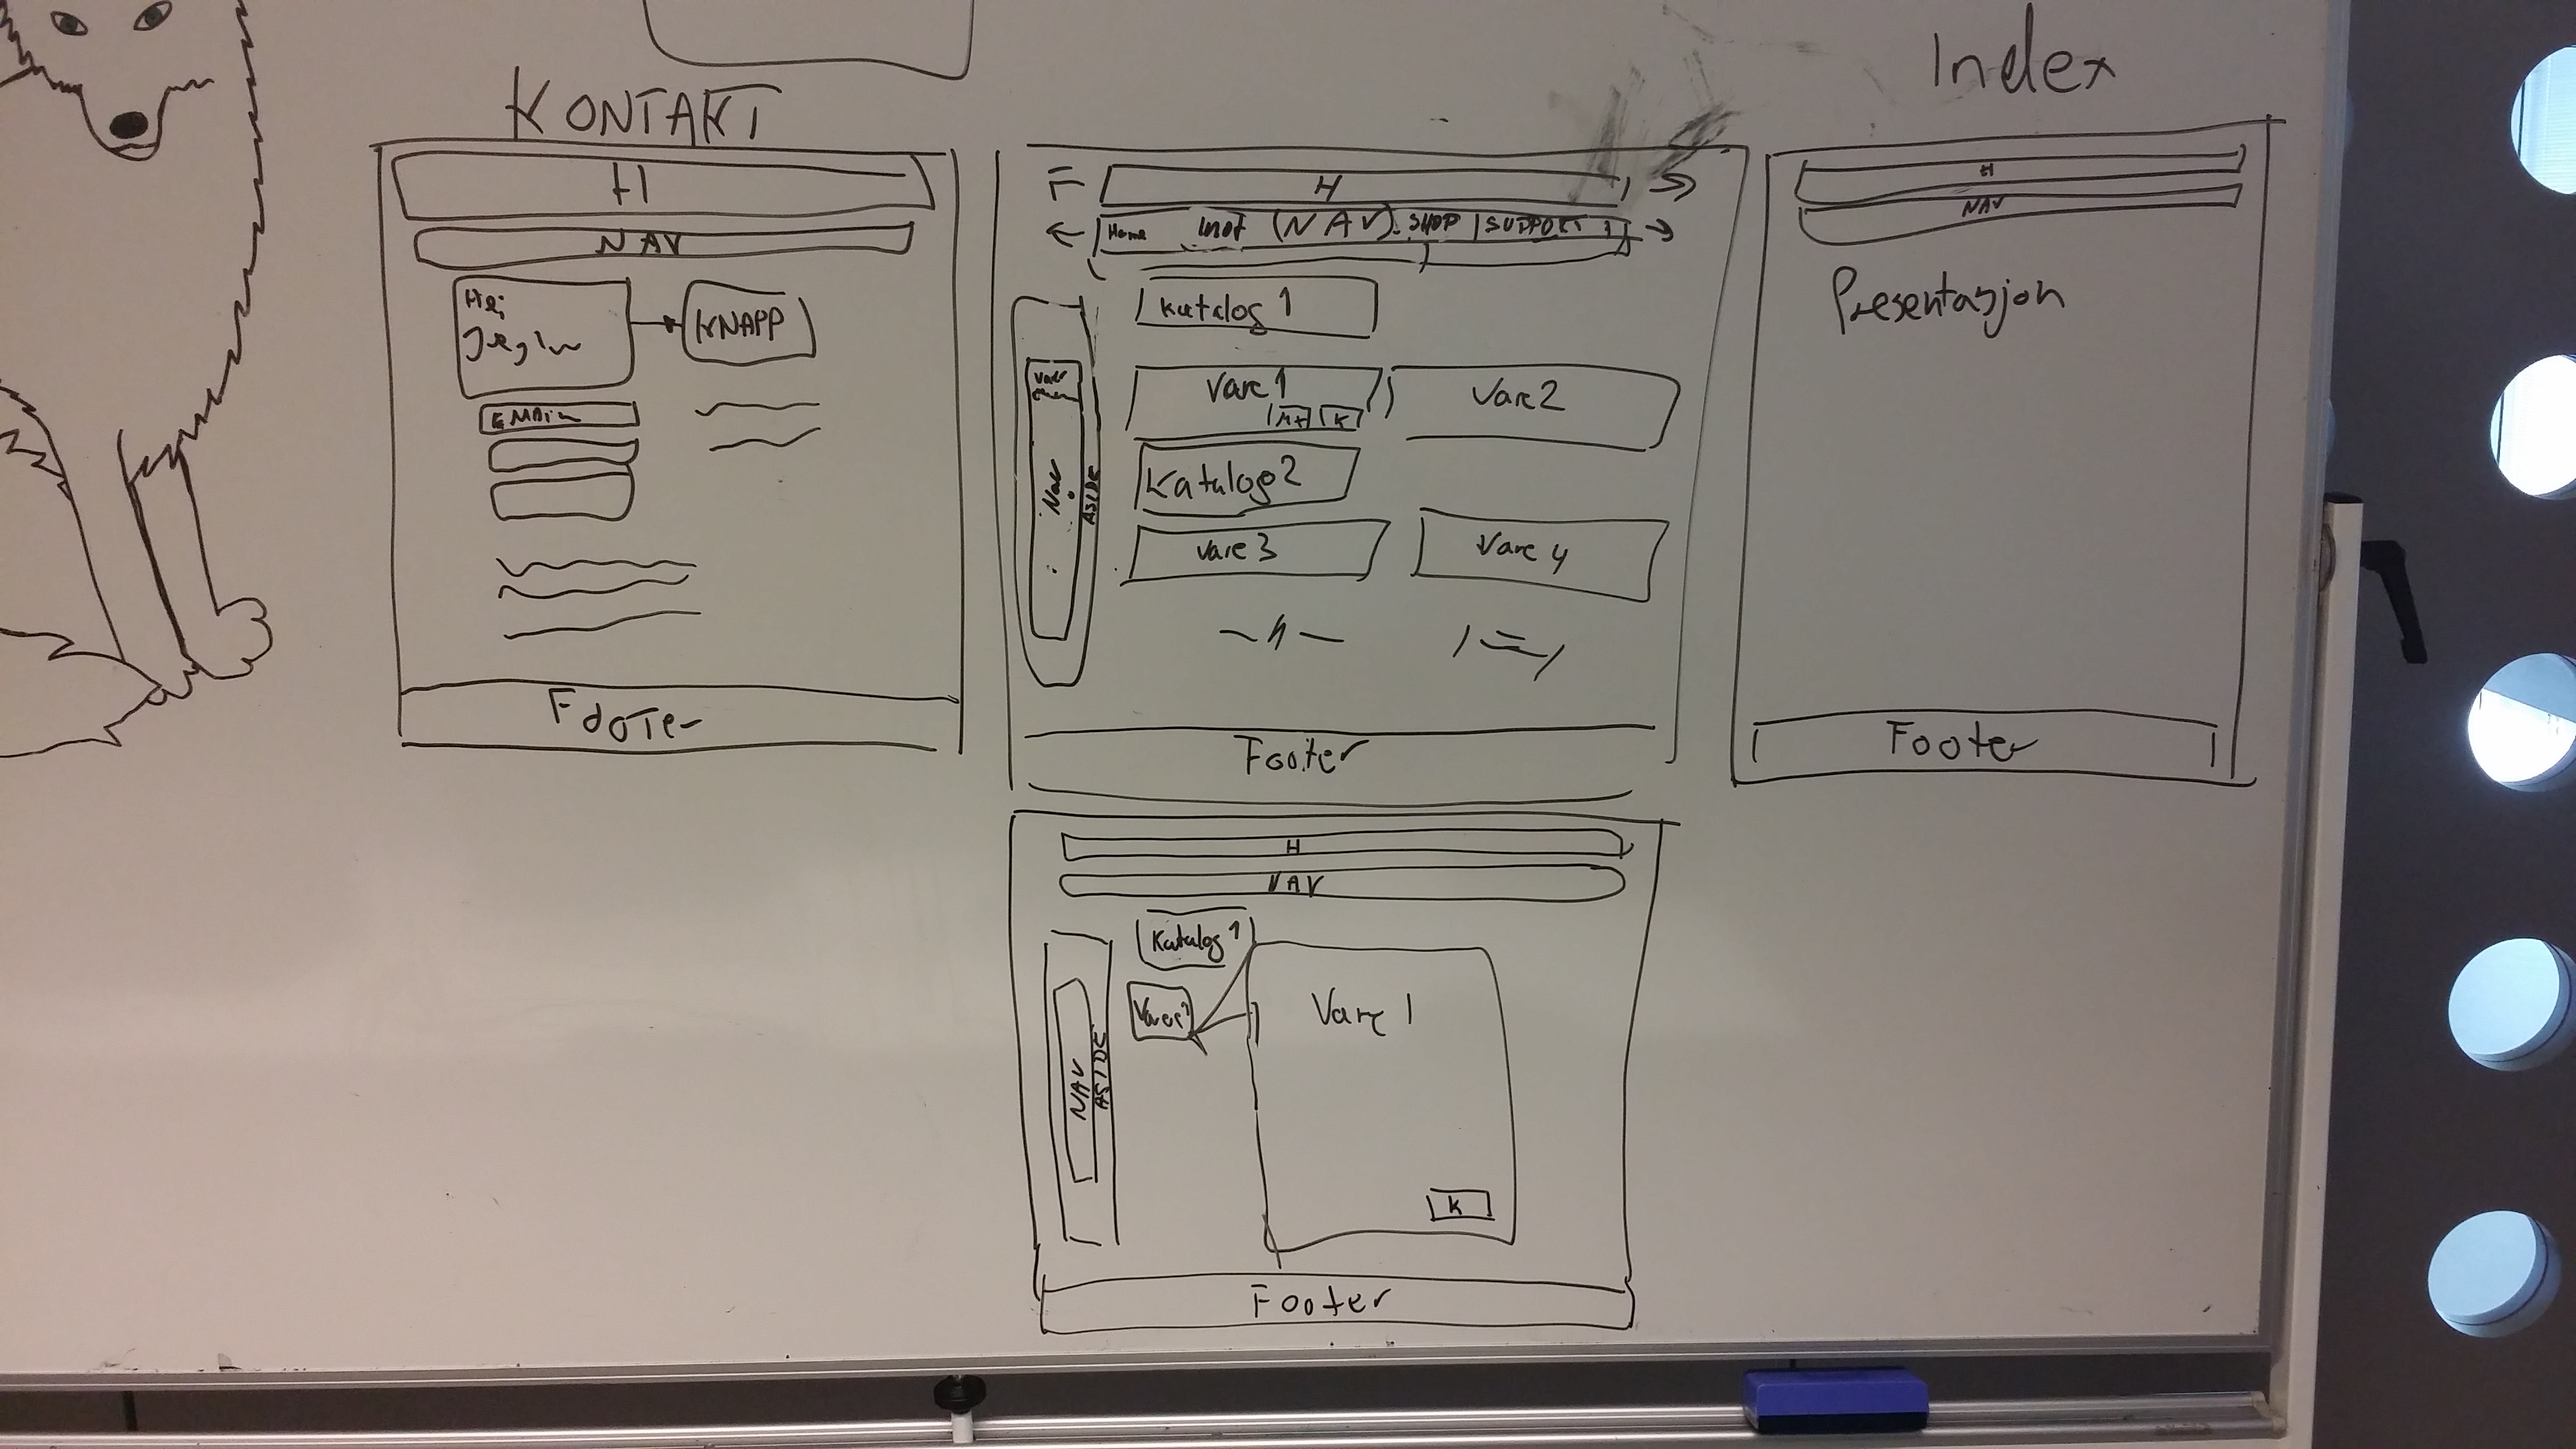 KONTAKT
H
NAV
Hei
KNAPP
EMAil
Footer
H
Home
(NAV) SHOP | SUPPORT
Katalog 1
Vare 1
K
Vare 2
Nav
ASIDE
Katalog 2
Vare 3
Vare 4
Footer
Index
H
NAV
Presentasjon
Footer
H
NAV
Katalog 1
Vare 1
NAV
ASIDE
K
Footer